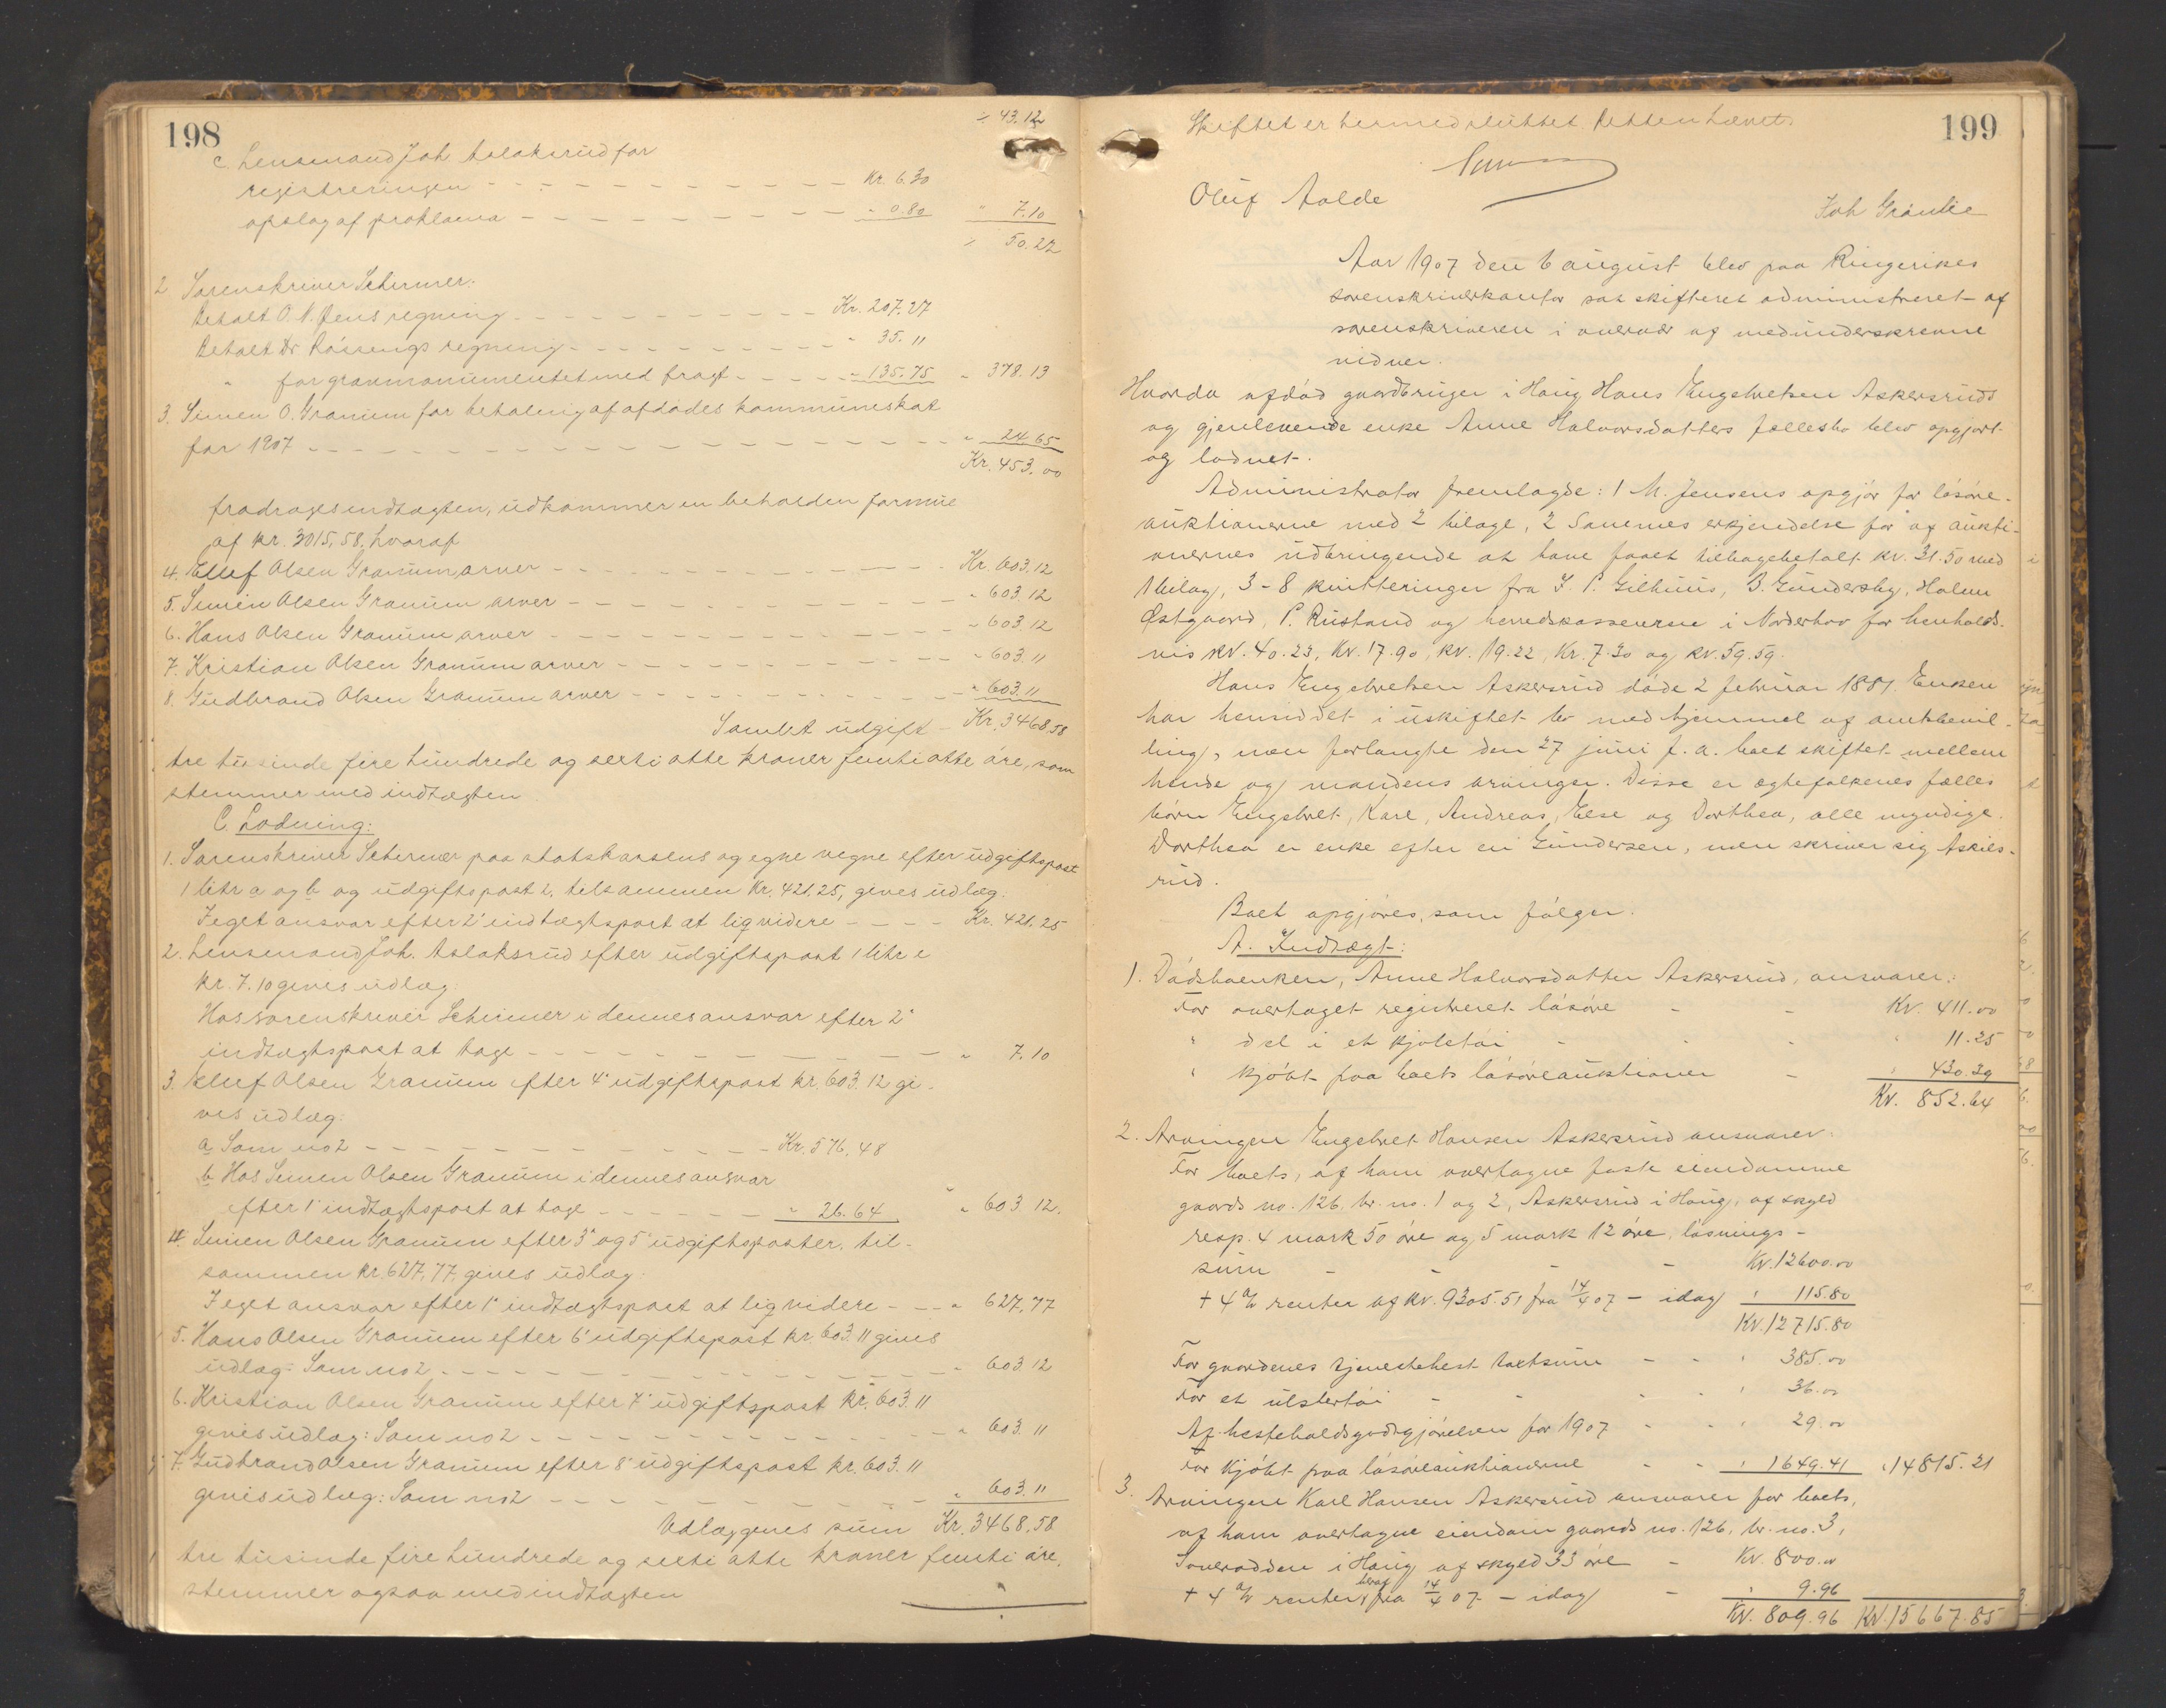 198
" 43.12
c. Lensmand Joh Aslaksrud for
registreringen - - - - - - - - - - - Kr. 6.30
opslag af proklama - - - - - - - - - - " 0.80 " 7.10
" 50.22
2 Sorenskriver Schirmer:
Betalt O. N. Jens regning - - - - - - - - Kr. 207.27
Betalt Dr Rössengs regning - - - - - - - - " 35. "
" for gravmonumentet med fragt - - - - " 135.75 " 378.13
3. Simen O. Granum for betaling af afdödes kommuneskat
for 1907 - - - - - - - - - - - - - - - - " 24.65
Kr. 453.00
fradrages indtægten, udkommer en beholden formue
af kr. 3015,58, hvoraf
4. Ellef Olsen Granum arver - - - - - - - - - Kr. 603.12
5. Simen Olsen Granum arver - - - - - - - - - " 603.12
6. Hans Olsen Granum arver - - - - - - - - - " 603.12
7. Kristian Olsen Granum arver - - - - - - - - " 603.11
8. Gudbrand Olsen Granum arver - - - - - - - " 603.11
Samlet udgift - Kr. 3468.58
tre tusinde fire hundrede og sexti otte kroner femti otte öre, som
stemmer med indtægten
C. Lodning:
1. Sorenskriver Schirmer paa statskassens og egne vegne efter udgiftspost
1 litr a og b og udgiftspost 2, tilsammen Kr. 421.25, gives udlæg.
I eget ansvar efter 2' indtægtspost at liqvidere - - - - Kr. 421.25
2. Lensmand Joh. Aslaksrud efter udgiftspost 1 litr c
kr. 7.10 gives udlæg:
Hos sorenskriver Schirmer i dennes ansvar efter 2'
indtægtspost at tage - - - - - - - - - - - " 7.10
3. Ellef Olsen Granum efter 4' udgiftspost kr. 603.12 gi-
ves udlæg:
a. Som no 2 - - - - - - - - - - - Kr. 576.48
b. Hos Simen Olsen Granum i dennes ansvar
efter 1' indtægtspost at tage - - - - - - " 26.64 " 603.12.
4. Simen Olsen Granum efter 3' og 5' udgiftsposter, til-
sammen kr. 627,77, gives udlæg:
I eget ansvar efter 1' indtægtspost at liqvidere - - - " 627,77
5. Hans Olsen Granum efter 6' udgiftspost kr 603.11 gives
udlæg: Som no 2 - - - - - - - - - - - - " 603.12
6. Kristian Olsen Granum efter 7' udgiftspost kr. 603.11
gives udlæg: Som no 2 - - - - - - - - - - " 603.11
7. Gudbrand Olsen Granum efter 8' udgiftspost kr. 603.11
gives udlæg: Som no 2 - - - - - - - - - - " 603.11
Udlæggenes sum Kr. 3468.58
tre tusinde fire hundrede og sexti otte kroner femti öre,
stemmer ogsaa med indtægten
199
Skiftet er hermed sluttet Retten hævet.
Oluf Aalde
Joh Granlie
Aar 1907 den 6 august blev paa Ringerikes
sorenskriverkontor sat skifteret administreret af
sorenskriveren i overvær af medunderskrevne
vidner.
Hvorda afdöd gaardbruger i Haug Hans Engebretsen Askersruds
og gjenlevende enke Anne Halvorsdatters fællesbo blev opgjort
og lodnet.
Administrator fremlagde: 1 M. Jensens opgjör for lösöre-
auktionerne med 2 bilage, 2 Sammes erkjendelse for af aukti-
onernes udbringende at have faaet tilbagebetalt kr. 31.50 med
1 bilag, 3-8 kvitteringer fra J. P. Gilhuus, B. Gundersby, Halvor
Östgaard, P. Rustand og herredskassereren i Norderhov for henholds-
vis kr. 40.23, kr. 17.90, kr. 19.22, Kr. 7.30 og kr. 59.59.
Hans Engebretsen Askersrud döde 2 februar 1881. Enken
har hensiddet i uskiftet bo med hjemmel af amtsbevil-
ling, men forlangte den 27 juni f. a. boet skiftet mellem
hende og mandens arvinger. Disse er ægtefolkenes fælles
börn Engebret, Karl, Andreas, Else og Dorthea, alle myndige.
Dorthea er enke efter en Gundersen, men skriver sig Askers-
rud.
Boet opgjöres, som fölger.
A. Indtægt:
1. Dödsboenken, Anne Halvorsdatter Askersrud, ansvarer:
For overtaget registreret lösöre - - Kr. 411.00
" del i et kjöletöi - - - " 11.25
" kjöbt paa boets lösöreauktioner - " 430.39
Kr. 852.64
2. Arvingen Engebret Hansen Askersrud ansvarer:
For boets, af ham overtagne faste eiendomme
gaards no. 126, br. no. 1 og 2, Askersrud i Haug, af skyld
resp. 4 mark 50 öre og 5 mark 12 öre, lösnings-
sum - - - - Kr. 12600.00
+ 4 % renter af kr. 9305.51 fra 14/4 07 - idag " 115.80
Kr. 12715.80
For gaardenes tjenestehest taxtsum - - " 385.00
For et ulstertöi - - - - " 36.00
Af hesteholdsgodtgjörelsen for 1907 - - " 29.00
For kjöbt paa lösöreauktionerne - - " 1649.41 " 14815.21
3. Arvingen Karl Hansen Askersrud ansvarer for boets,
af ham overtagne eiendom gaards no. 126, br. no. 3,
i Haug af skyld 33 öre - Kr. 800.00
+ 4 % renter heraf fra 14/4 07 - idag - " 9.96
Kr. 809.96 Kr. 15667.85